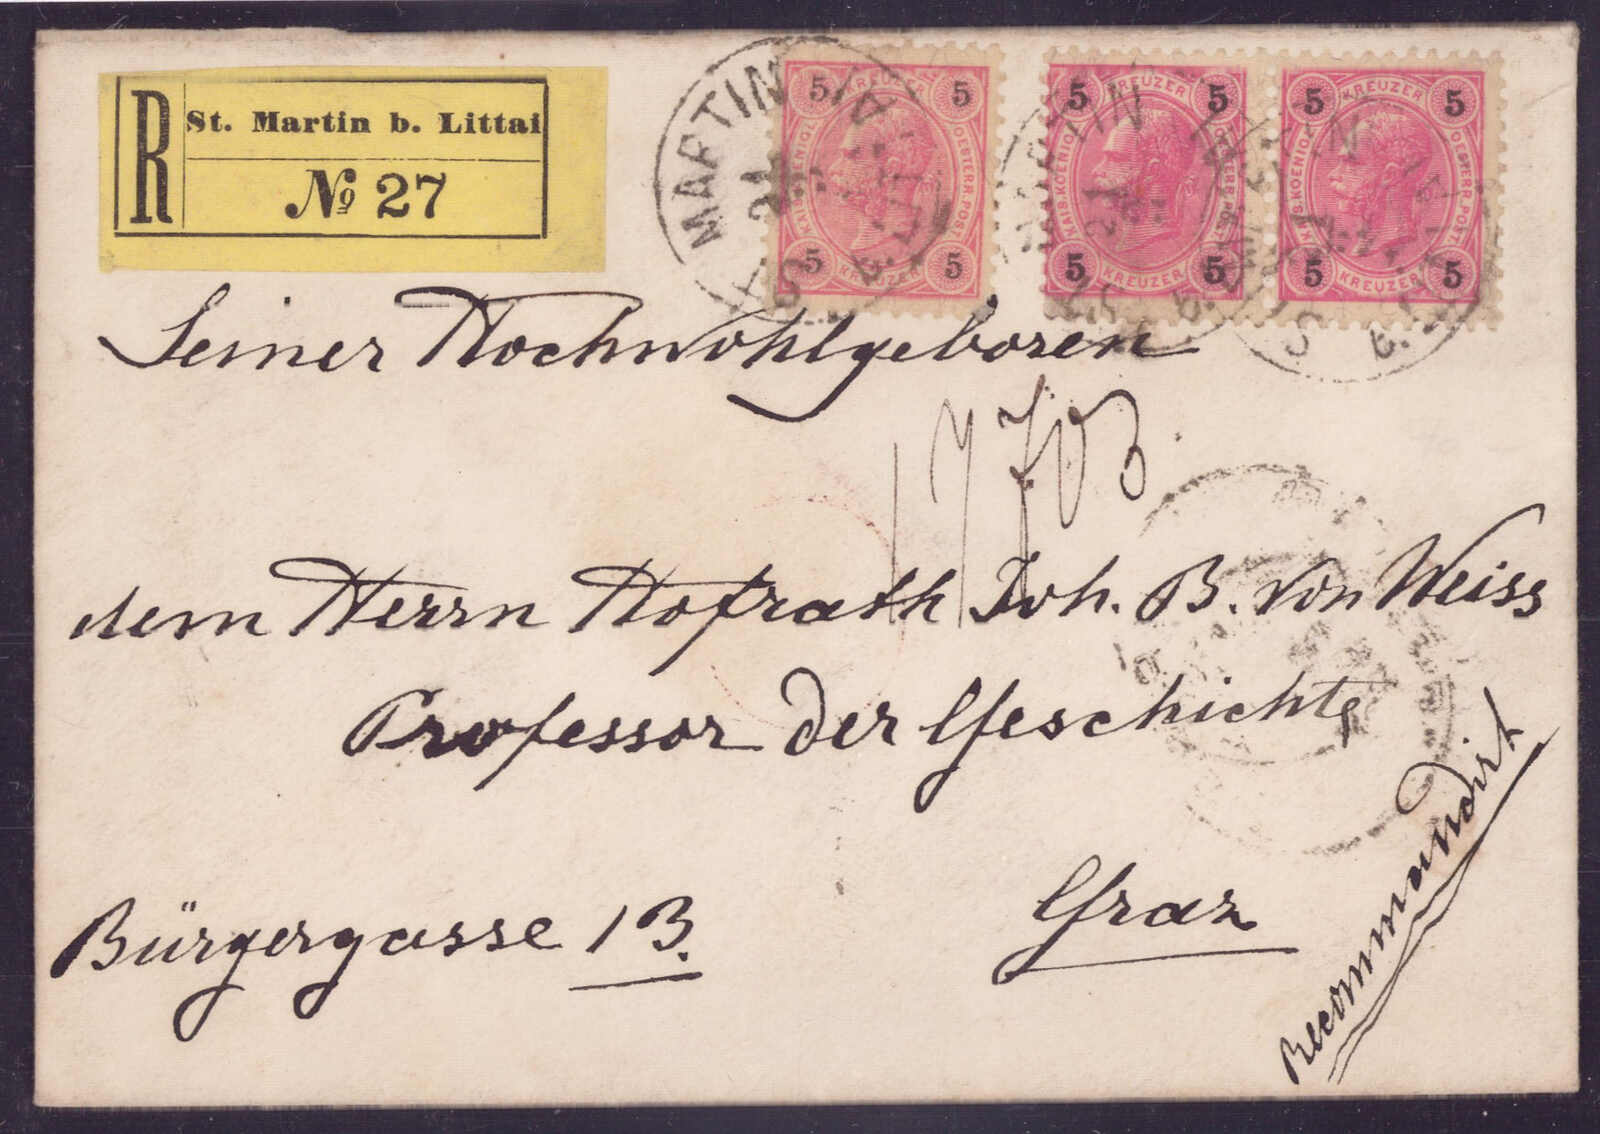 R
St. Martin b. Littai
№ 27
5 KREUZER 5
KAIS. KOENIGL. OESTERR. POST.
5 KREUZER 5
5 KREUZER 5
KAIS. KOENIGL. OESTERR. POST.
5 KREUZER 5
5 KREUZER 5
KAIS. KOENIGL. OESTERR. POST.
5 KREUZER 5
MARTIN
21
MARTIN
21
Seiner Hochwohlgeboren
703
dem Herrn Hofrath Joh. B. von Weiss
Professor der Geschichte
Graz
Bürgergasse 13.
Recommandirt